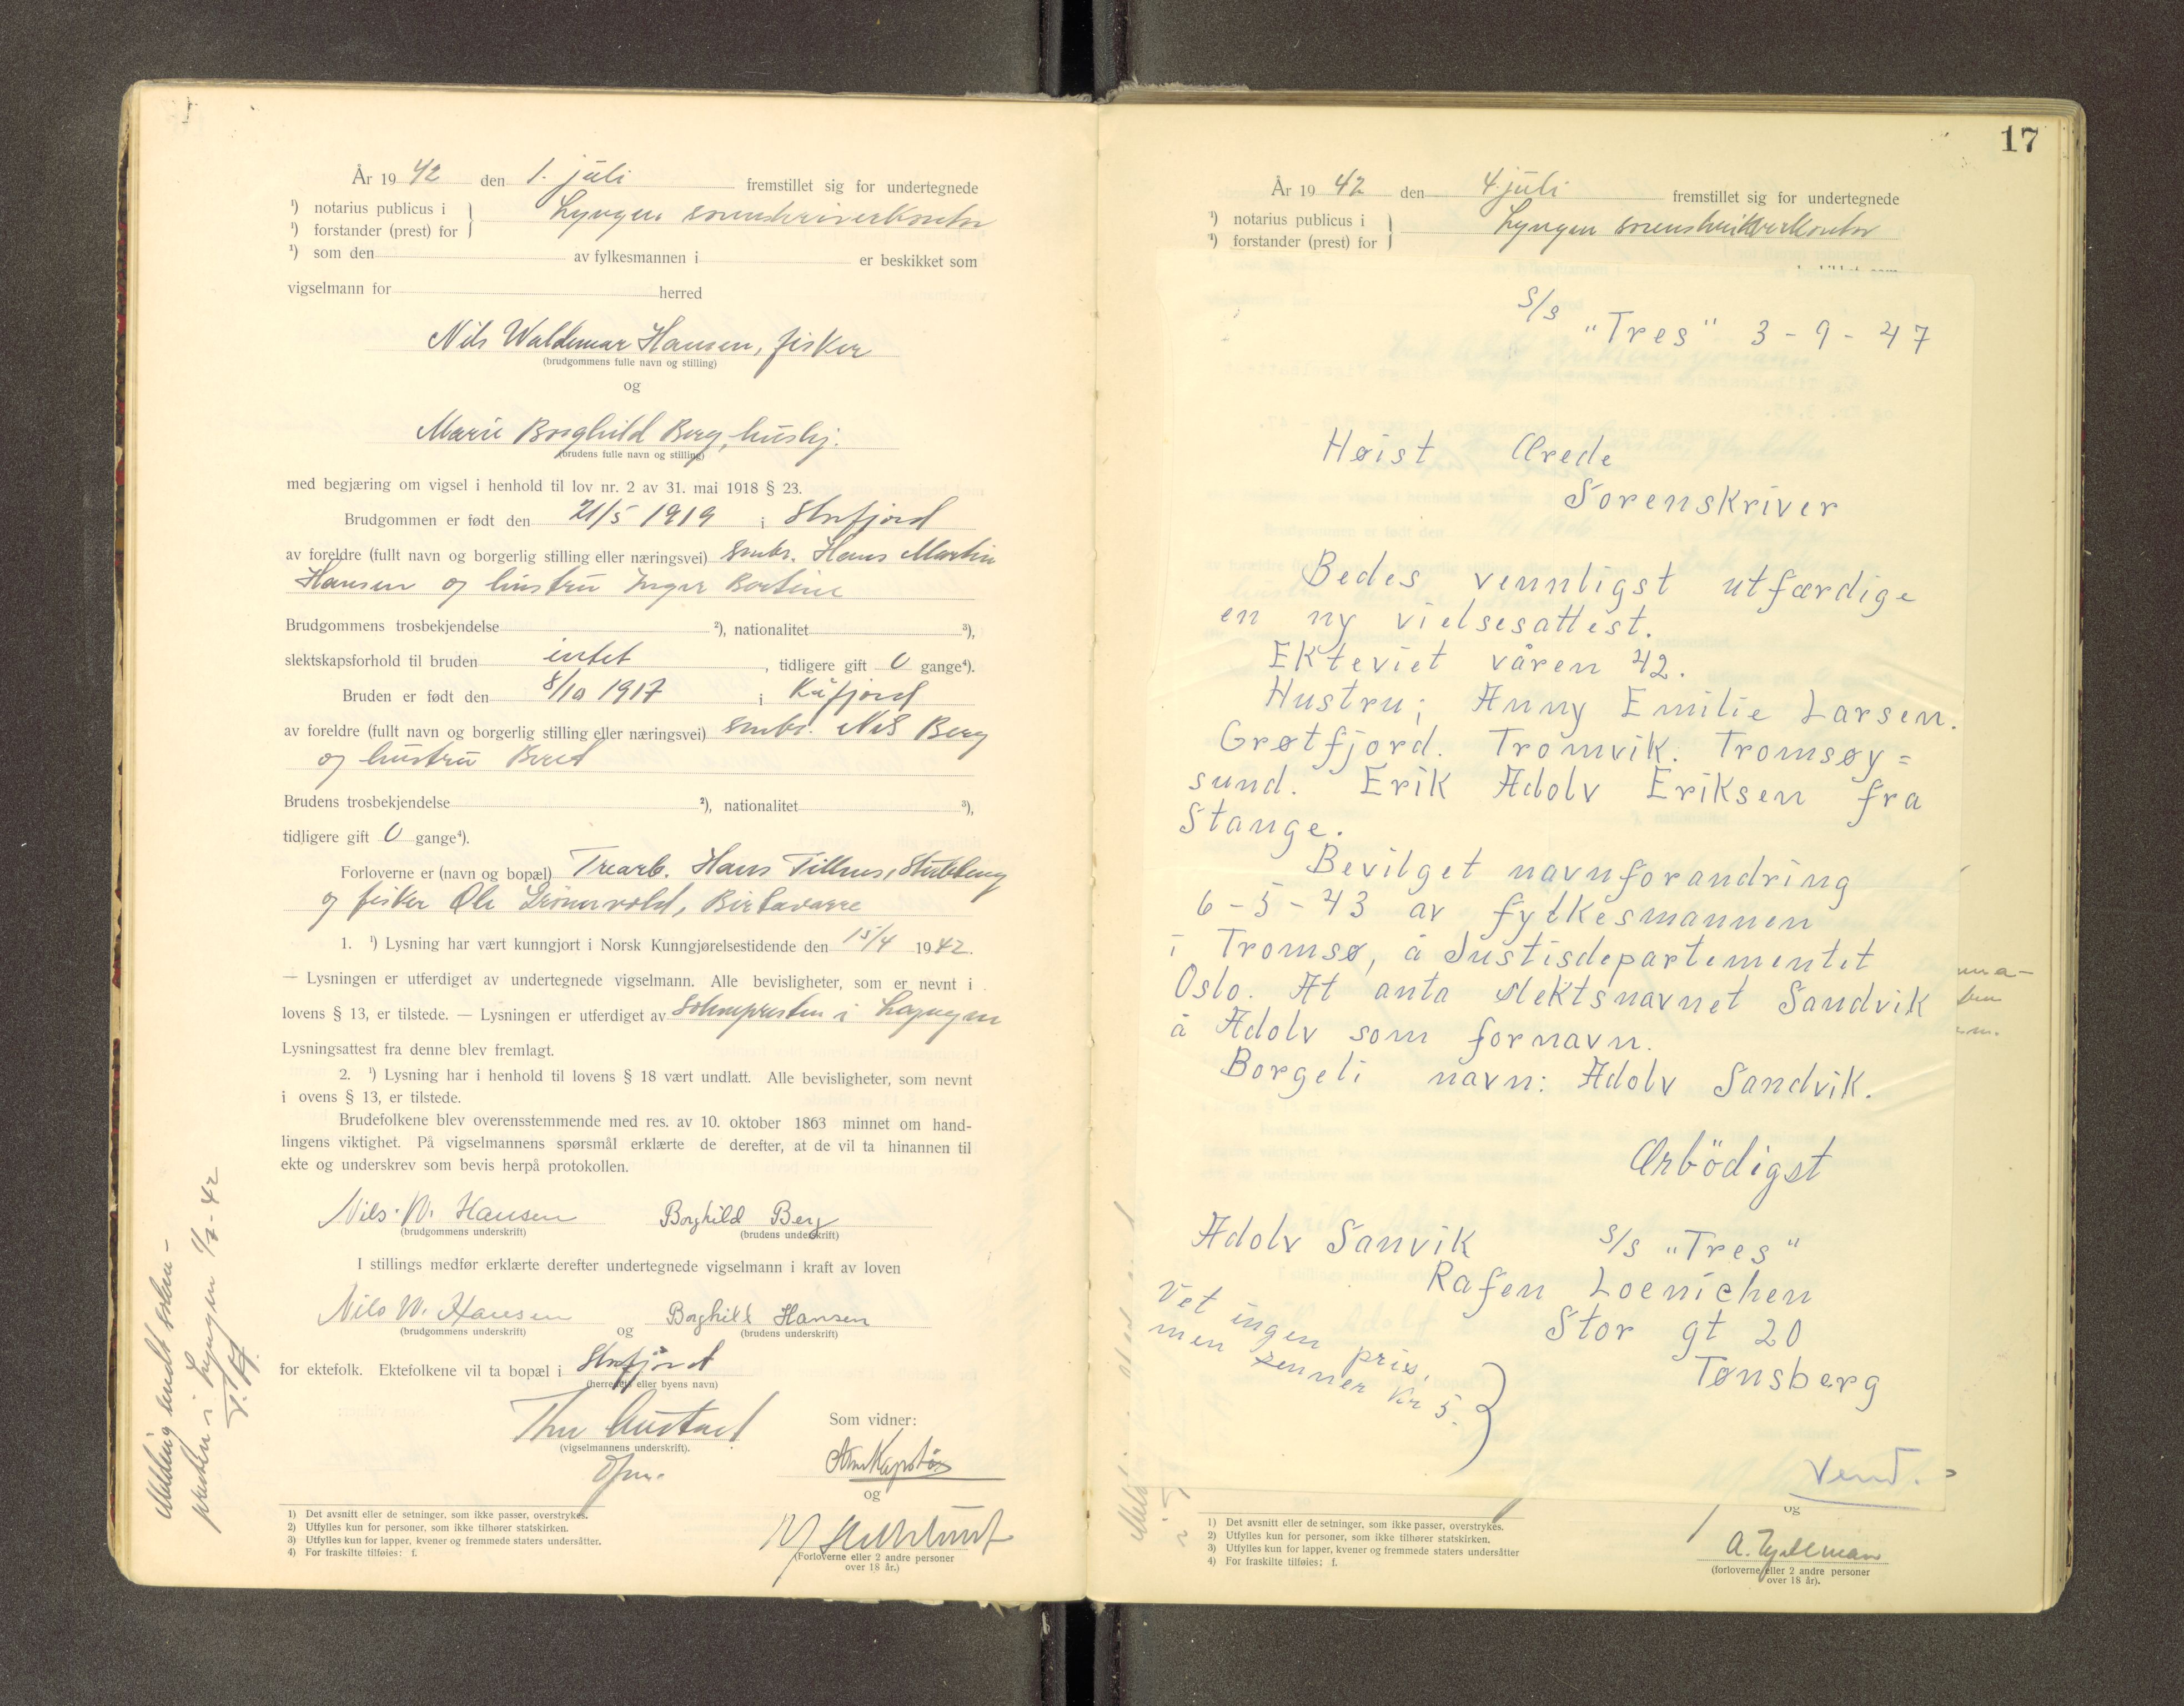 År 19 42 den 1. juli fremstillet sig for undertegnede
¹) notarius publicus i
¹) forstander (prest) for
Lyngen sorenskriverkontor
¹) som den av fylkesmannen i er beskikket som
vigselmann for herred
Nils Waldemar Hansen, fisker
(brudgommens fulle navn og stilling)
og
Marie Borghild Berg, hushj.
(brudens fulle navn og stilling)
med begjæring om vigsel i henhold til lov nr. 2 av 31. mai 1918 § 23.
Brudgommen er født den 21/5 1919 i Storfjord
av foreldre (fullt navn og borgerlig stilling eller næringsvei) småbr. Hans Martin
Hansen og hustru Inger Bertine
Brudgommens trosbekjendelse ²), nationalitet ³),
slektskapsforhold til bruden intet , tidligere gift 0 gange⁴).
Bruden er født den 8/10 1917 i Kåfjord
av foreldre (fullt navn og borgerlig stilling eller næringsvei) småbr. Nils Berg
og hustru Berit
Brudens trosbekjendelse ²), nationalitet ³),
tidligere gift 0 gange⁴).
Forloverne er (navn og bopæl) Trearb. Hans
og fisker Ole Birtavarre
1. ¹) Lysning har vært kunngjort i Norsk Kunngjørelsestidende den 15/4 1942.
— Lysningen er utferdiget av undertegnede vigselmann. Alle bevisligheter, som er nevnt i
lovens § 13, er tilstede. — Lysningen er utferdiget av Soknepresten i Lyngen
Lysningsattest fra denne blev fremlagt.
2. ¹) Lysning har i henhold til lovens § 18 vært undlatt. Alle bevisligheter, som nevnt
i ovens § 13, er tilstede.
Brudefolkene blev overensstemmende med res. av 10. oktober 1863 minnet om hand-
lingens viktighet. På vigselmannens spørsmål erklærte de derefter, at de vil ta hinannen til
ekte og underskrev som bevis herpå protokollen.
Nils. W. Hansen Borghild Berg
(brudgommens underskrift) (brudens underskrift)
I stillings medfør erklærte derefter undertegnede vigselmann i kraft av loven
Nils W. Hansen og Borghild Hansen
(brudgommens underskrift) (brudens underskrift)
for ektefolk. Ektefolkene vil ta bopæl i Storfjord
(herredets eller byens navn)
Som vidner:
(vigselmannens underskrift).
og
(Forloverne eller 2 andre personer
over 18 år.)
1) Det avsnitt eller de setninger, som ikke passer, overstrykes.
2) Utfylles kun for personer, som ikke tilhører statskirken.
3) Utfylles kun for lapper, kvener og fremmede staters undersåtter.
4) For fraskilte tilføies: f.
Melding sendt sokne-
presten i Lyngen 1/7-42
17
År 19 42 den 4 juli fremstillet sig for undertegnede
¹) notarius publicus i
¹) forstander (prest) for
Lyngen
S/S "Tres" 3-9-47
Høist Ærede
Sorenskriver
Bedes vennligst utfærdige
en ny vielsesattest.
Ekteviet våren 42.
Hustru; Anny Emilie Larsen.
Grøtfjord. Tromvik. Tromsøy=
sund. Erik Adolv Eriksen fra
Stange.
Bevilget navnforandring
6-5-43 av fylkesmannen
i Tromsø, å Justisdepartementet
Oslo. At anta slektsnavnet Sandvik
å Adolv som fornavn.
Borgeli navn: Adolv Sandvik.
Ærbödigst
Adolv Sanvik S/S "Tres"
Rafen Loenichen
Stor gt 20
Tønsberg
Vet ingen pris,
men senner Kr 5.
Vend.
og
(forloverne eller 2 andre personer
over 18 år).
1) Det avsnitt eller de setninger, som ikke passer, overstrykes.
2) Utfylles kun for personer, som ikke tilhører statskirken.
3) Utfylles kun for lapper, kvener og fremmede staters undersåtter
4) For fraskilte tilføies; f.